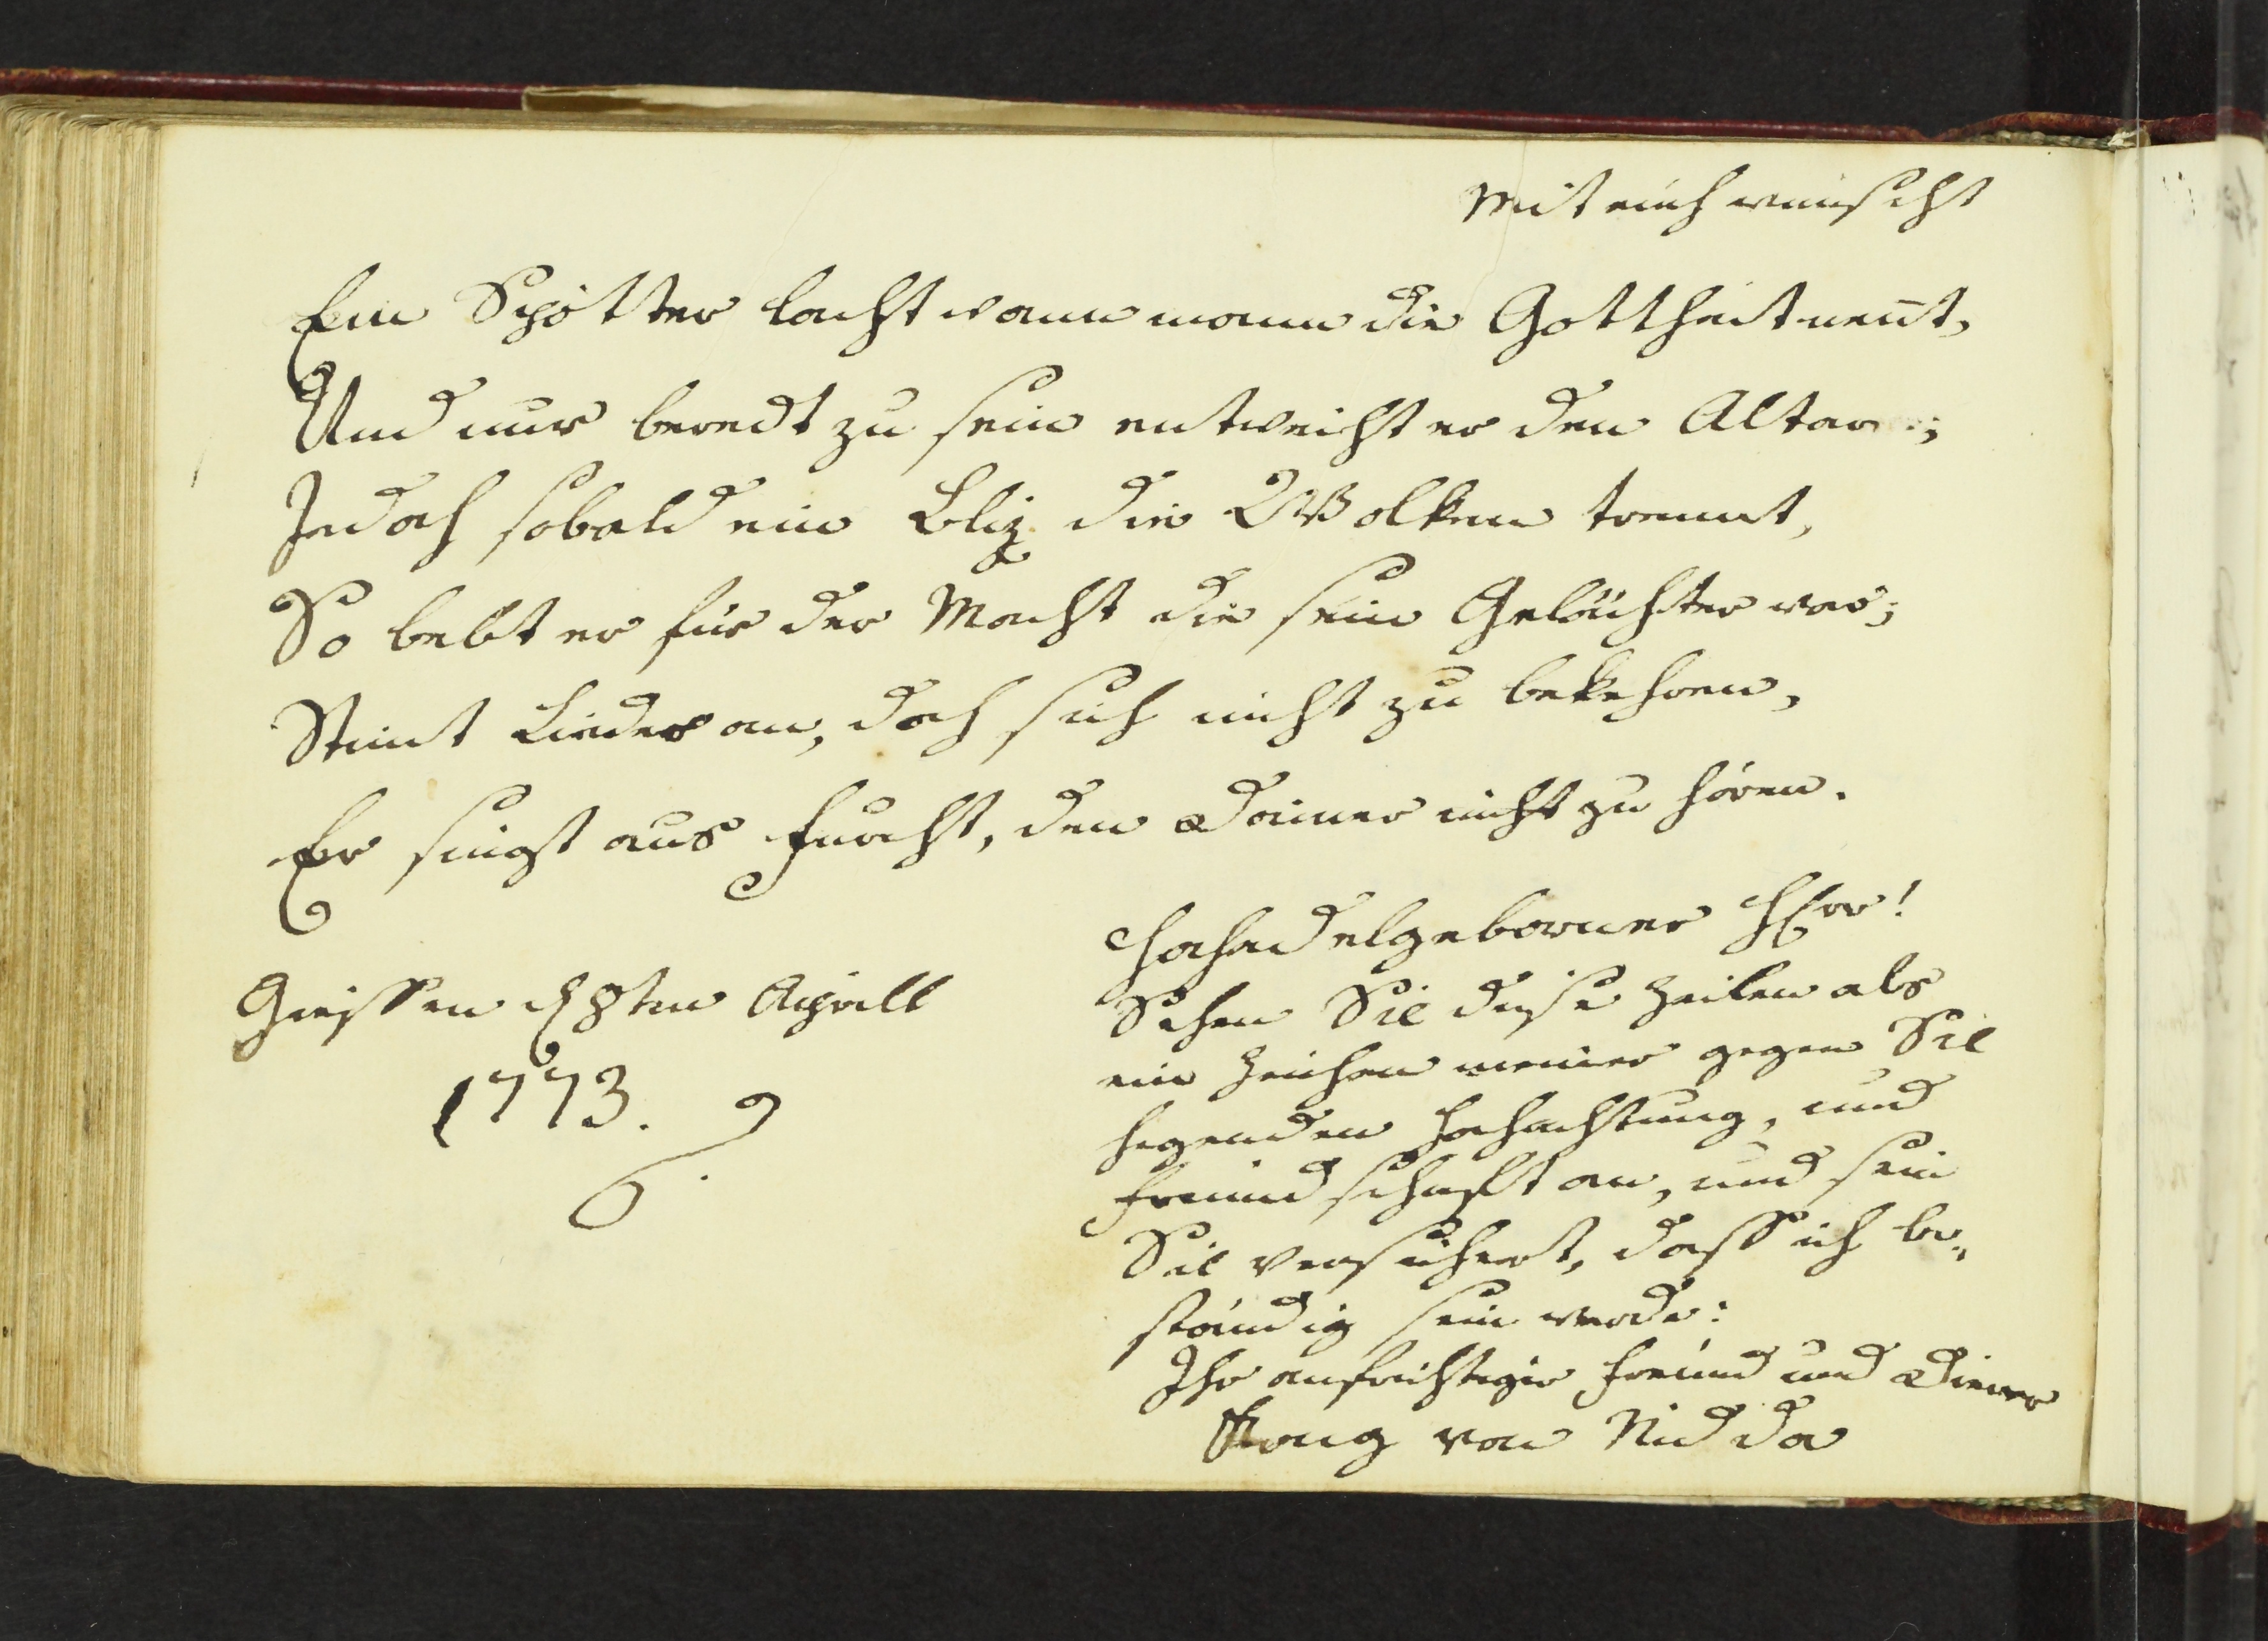 Mit auch wünscht
Ein Spötter lacht wann mann die Gottheit nen̄t,
Und nur beredt zu sein entweicht er den Altar;
Jedoch sobald ein Bliz die Wolken trennt,
So bebt er für der Macht die sein Gelächter war;
Stimt Lieder an, doch sich nicht zu bekehren,
Er singt aus Furcht, den Donner nicht zu hören.
Hochedelgeborner HErr!
Sehen Sie diese Zeilen als
ein Zeichen meiner gegen Sie
hegenden Hochachtung, und
Freundschafft an, und sein
Sie versichert, dass ich be„
ständig sein werde:
Ihr aufrichtiger Freund und Diener
von Nidda
Giessen d 8ten Aprill
1773.